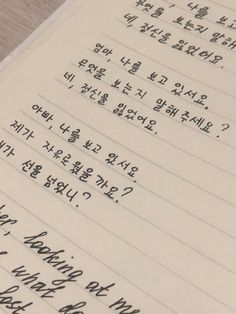 , 나를 보고
무엇을 보는지 말해
네, 정신을 잃었어요.
엄마, 나를 보고 있서요.
무엇을 보는지 말해 주세요?
네, 정신을 잃었어요.
아빠, 나를 보고 있서요.
제가 자유로웠을 가요?
가 선을 넘었니?
looking at me
what do
lost